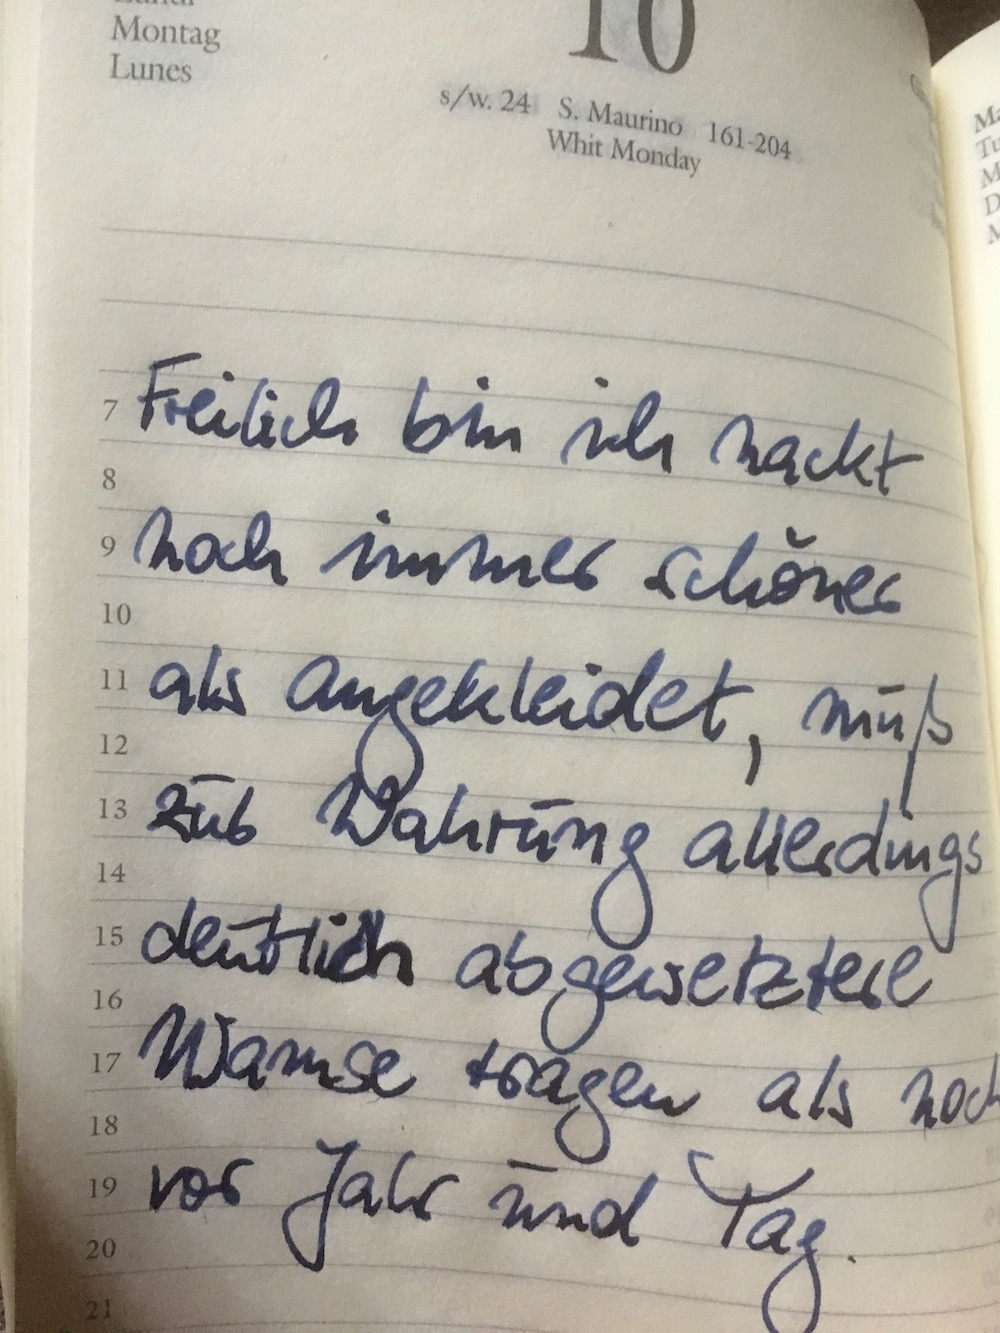 Montag
Lunes
10
s/w. 24 S. Maurino 161-204
Whit Monday
7 Freilich bin ich nackt
8
9 noch immer schöner
10
11 als angekleidet, muß
12
13 zur Wahrung allerdings
14
15 deutlich abgewetztere
16
17 Wamse tragen als noch
18
19 vor Jahr und Tag.
20
21